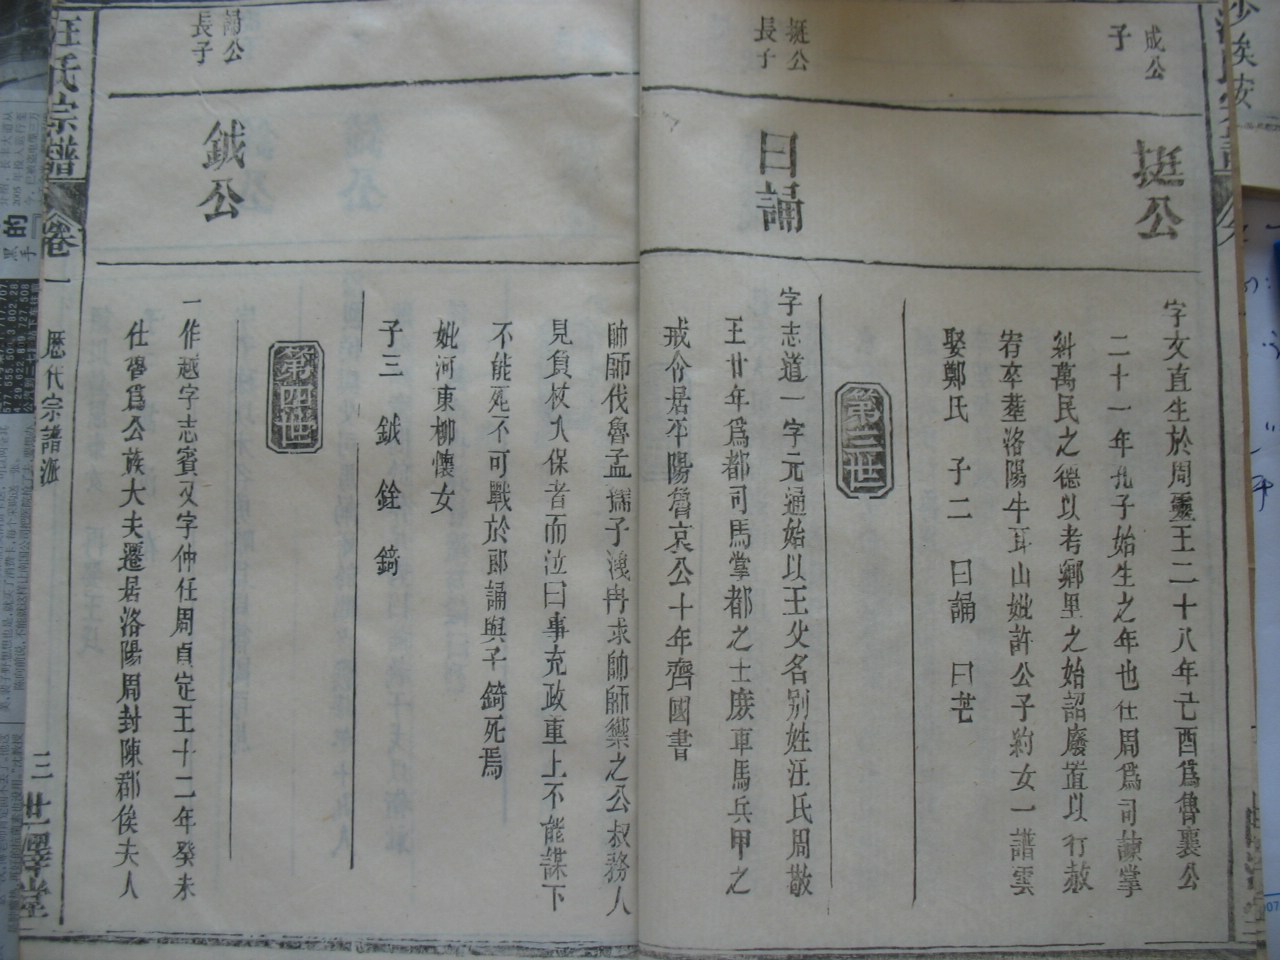 成公
子
挺公
字文直生於周靈王二十八年己酉爲魯襄公
二十一年孔子始生之年也仕周爲司諫掌
糾萬民之德以考鄉里之始詔廢置以行赦
宥卒塟洛陽牛耳山妣許公子約女一譜雲
娶鄭氏 子二 曰誦 曰芒
第三世
挺公
長子
曰誦
字志道一字元通始以王父名别姓汪氏周敬
王廿年爲都司馬掌都之士庻車馬兵甲之
戒令居平陽魯哀公十年齊國書
帥師伐魯孟孺子洩冉求帥師禦之公叔務人
見負杖入保者而泣曰事充政重上不能謀下
不能死不可戰於郎誦與子錡死焉
妣河東柳懷女
子三 鉞 銓 錡
第四世
誦公
長子
鉞公
一作越字志賓又字仲任周貞定王十二年癸未
仕魯爲公族大夫遷居洛陽周封陳郡侯夫人
汪氏宗譜
卷一
歷代宗譜派
三
世澤堂